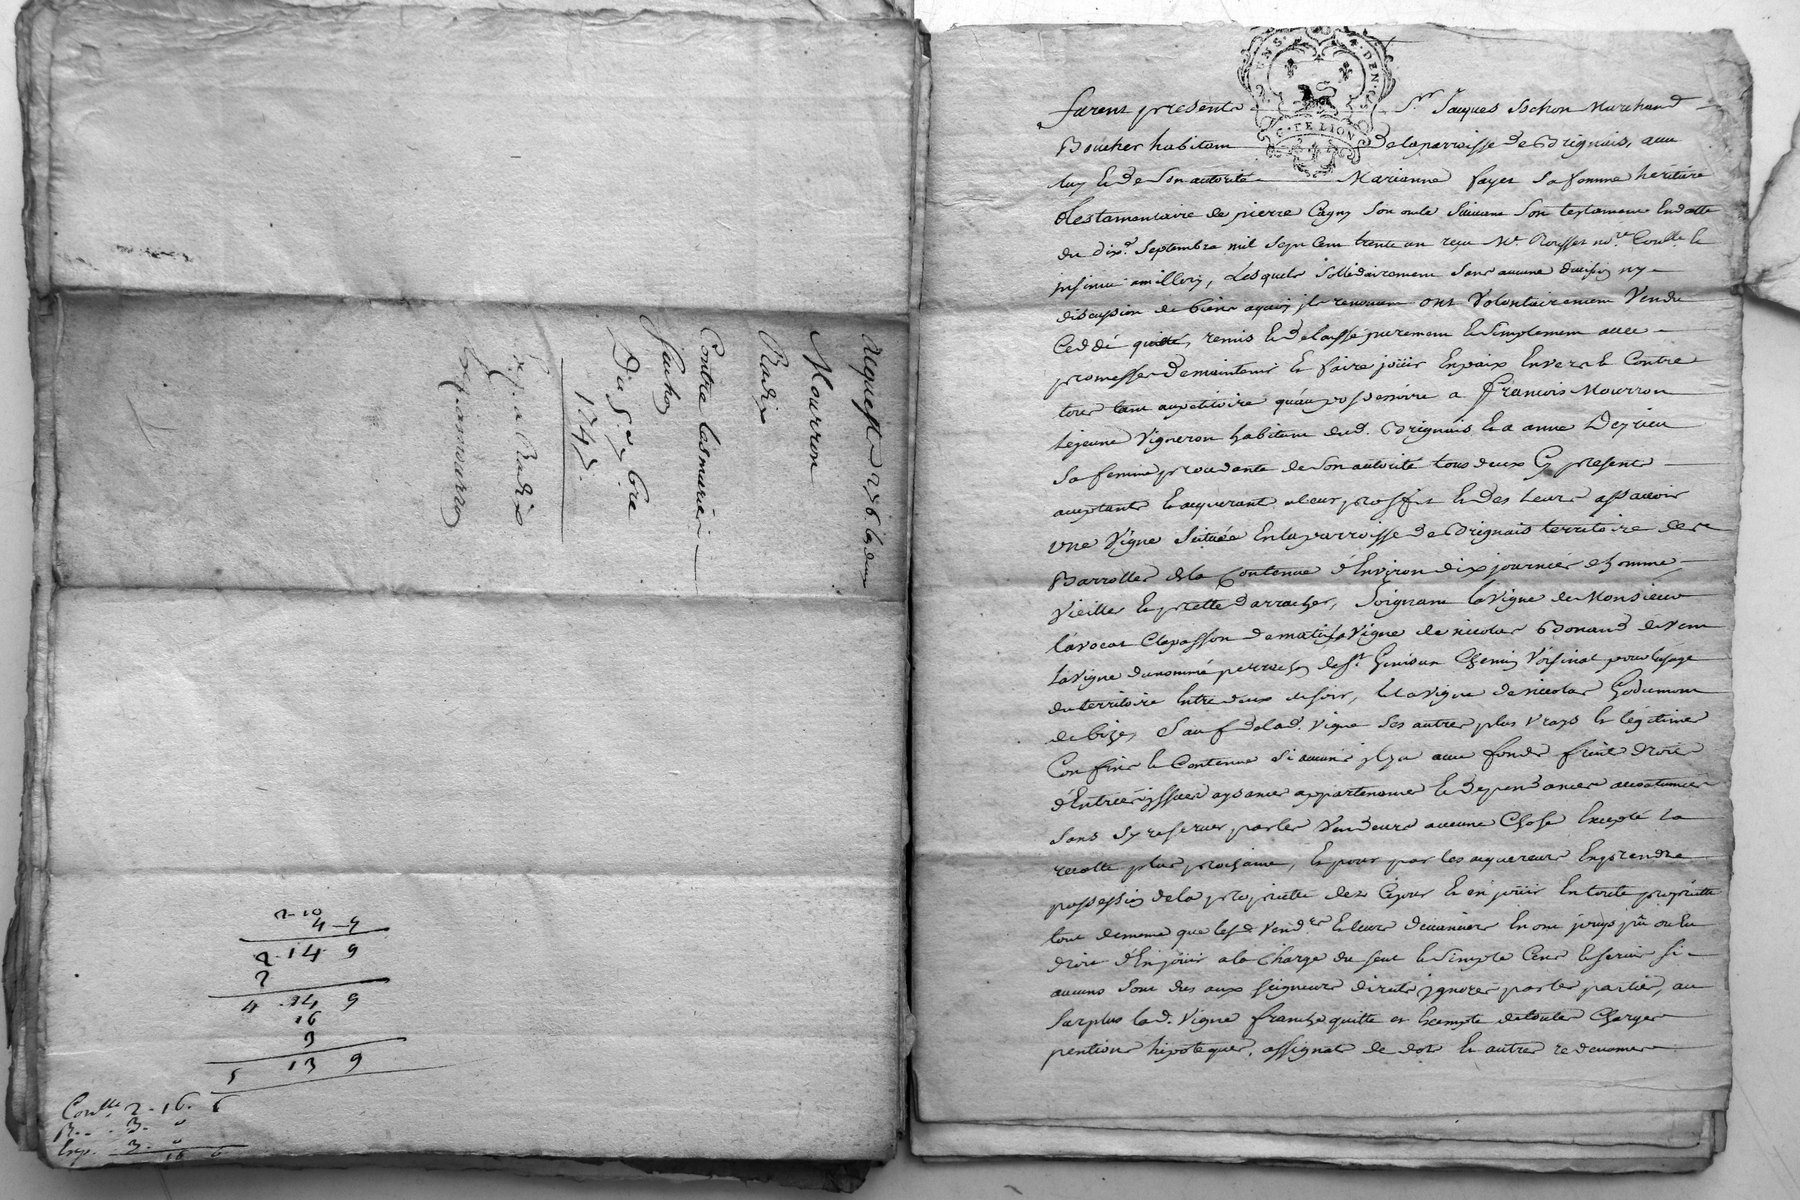 acquest
Mourron
Radix
Contre les mariés
Du 5 7bre
1747.
2-10
4-9
2-14 9
2
4 -14 9
16
9
5 13 9
Conlle 2-16-6
3- 0
Insp. 3- 0
16 6
GNS. DEN
G. DE LION
furent presents Sr Jacques Marchand
Boucher habitant de la parroisse de Brignais, avec
luy et de Son autorité Marianne fayet Sa femme héritiere
testamentaire de pierre Cagny Son oncle Suivant Son testament En datte
du dixe Septembre mil Sept Cent trente un reçu Me Rousset nore Conlle et
insinué a millery, Lesquels Sollidairement Sans aucune division ny
discussion de biens a quoy ils renoncent ont Volontairement Vendu
Ceddé quitté, remis et delaissé purement et Simplement avec
promesse de maintenir et faire joüir En paix Envers et Contre
tous tant au petitoire qu'au possessoire a francois Mourron
Lejeune Vigneron habitant dud. Brignais et a anne Deyrieu
Sa femme procedante de Son autorité tous deux Cy presents
acceptants et acquerant a leur proffit et des Leurs assavoir
une Vigne Scituée En la parroisse de Brignais territoire de
Barrolles de la Contenue d'Environ dix journées d'homme
Vieille et preste d'arracher, joignant la Vigne de Monsieur
L'avocat Clapasson de matin la Vigne de nicolas Bonand de vent
La Vigne du nommé de St Genis un Chemin Voisinal pour l'usage
du territoire Entre deux de soir, et la Vigne de nicolas Godumont
de bize, Sauf de lad. Vigne Ses autres plus Vrays et légitimes
Confins et Contenue Si aucuns il y a avec fonds fruit droits
d'Entrées issues aysances appartenances et dependances accoutumées
Sans S'y reserver par les Vendeurs aucune Chose Excepté La
recolte plus prochaine, et pour par les acquereurs En prendre
possession de la proprieté dez Cejour et en joüir En toute proprieté
tout de meme que lesd Vendrs et leurs devanciers En ont joüys pû ou du
droit d'En joüir a la Charge du seul et Simple Cens et servis si
aucuns Sont dus aux Seigneurs directs ignorés par les parties, au
Surplus lad. Vigne franche quitte et Exempte de toutes Charges
pentions hipoteques, assignat de dot et autres redevances